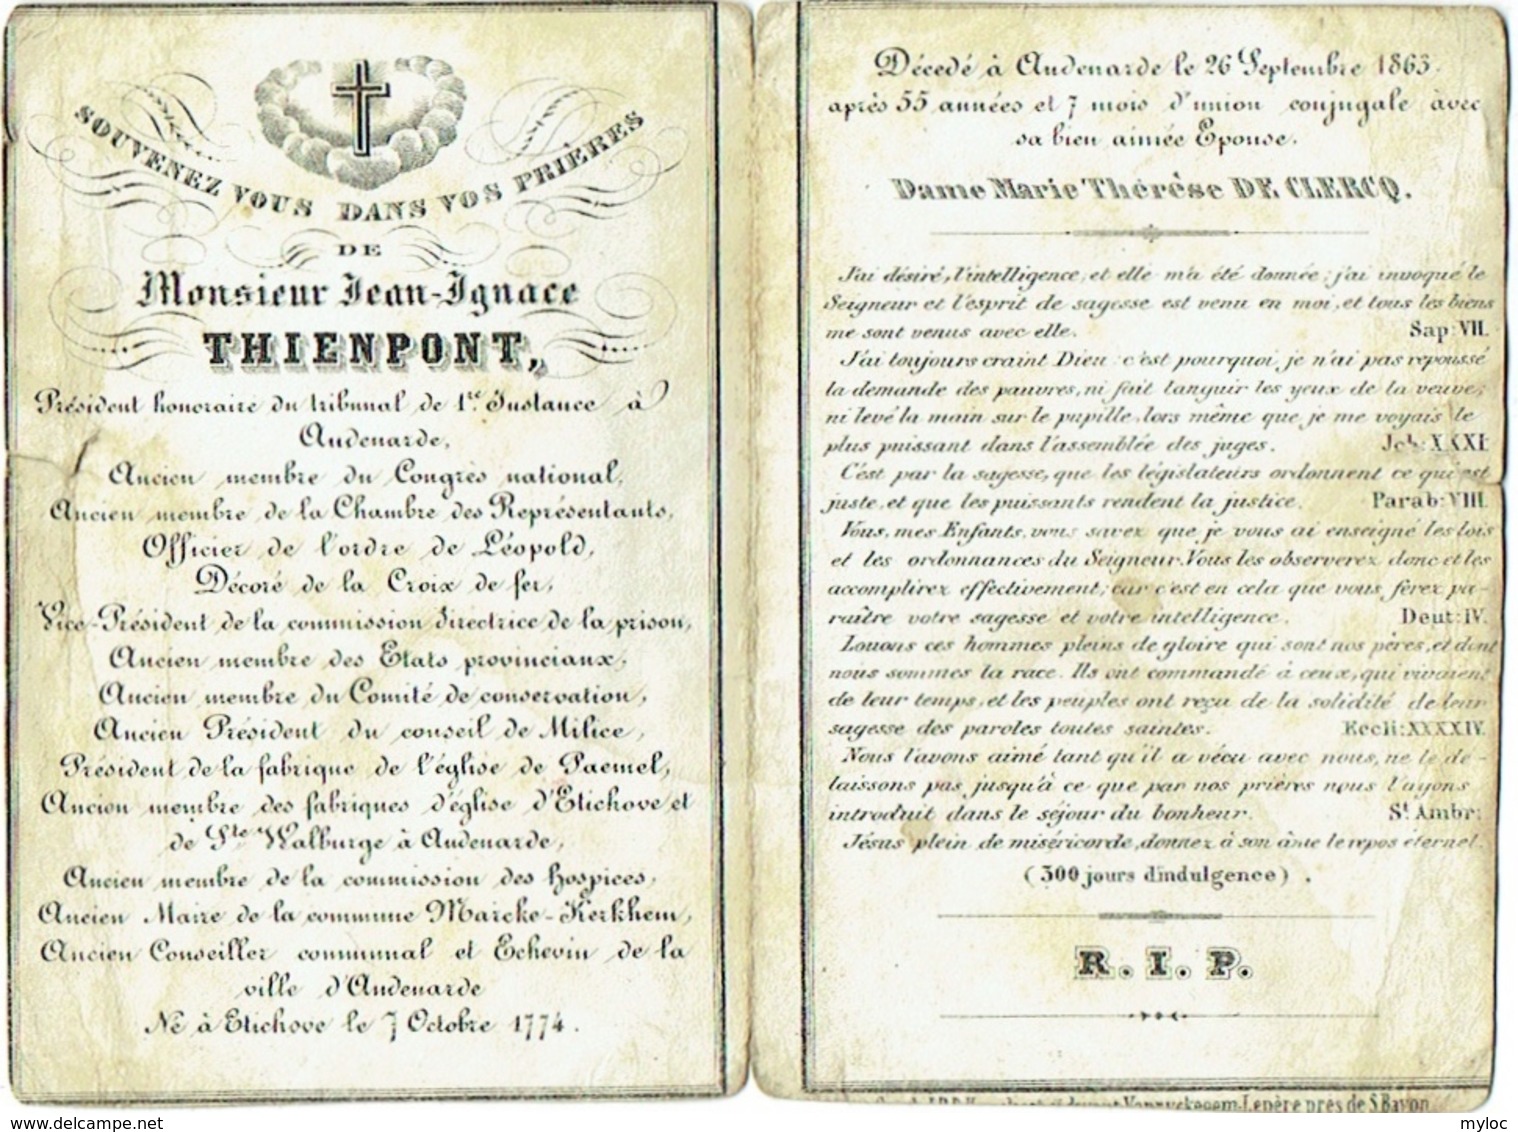 SOUVENEZ VOUS DANS VOS PRIÈRES
DE
Monsieur Jean-Ignace
THIENPONT,
Président honoraire du tribunal de 1re Instance à
Audenarde,
Ancien membre du Congrès national,
Ancien membre de la Chambre des Représentants,
Officier de l'ordre de Léopold,
Décoré de la Croix de fer,
Vice-Président de la commission directrice de la prison,
Ancien membre des Etats provinciaux,
Ancien membre du Comité de conservation,
Ancien Président du conseil de Milice,
Président de la fabrique de l'église de Paemel,
Ancien membre des fabriques d'église d'Etichove et
de Ste Walburge à Audenarde,
Ancien membre de la commission des hospices,
Ancien Maire de la commune Marcke-Kerkhem,
Ancien Conseiller communal et Echevin de la
ville d'Audenarde
Né à Etichove le 7 Octobre 1774.
Décedé à Audenarde le 26 Septembre 1863.
après 55 années et 7 mois d'union conjugale avec
sa bien aimée Epouse.
Dame Marie Thérèse DE CLERCQ.
J'ai désiré, l'intelligence, et elle m'a été donnée; j'ai invoqué le
Seigneur et l'esprit de sagesse est venu en moi, et tous les biens
me sont venus avec elle. Sap: VII.
J'ai toujours craint Dieu: c'est pourquoi, je n'ai pas repoussé
la demande des pauvres, ni fait languir les yeux de la veuve;
ni levé la main sur le pupille, lors même que je me voyais le
plus puissant dans l'assemblée des juges. Job: XXXI:
C'est par la sagesse, que les législateurs ordonnent ce qui est
juste, et que les puissants rendent la justice. Parab: VIII.
Vous, mes Enfants, vous savez que je vous ai enseigné les lois
et les ordonnances du Seigneur. Vous les observerez donc et les
accomplirez effectivement; car c'est en cela que vous ferez pa-
raître votre sagesse et votre intelligence. Deut: IV.
Louons ces hommes pleins de gloire qui sont nos pères, et dont
nous sommes la race. Ils ont commandé à ceux, qui vivaient
de leur temps, et les peuples ont reçu de la solidité de leur
sagesse des paroles toutes saintes. Eccli: XXXXIV.
Nous l'avons aimé tant qu'il a vécu avec nous, ne le dé-
laissons pas jusqu'à ce que par nos prières nous l'ayons
introduit dans le séjour du bonheur. St Ambr:
Jésus plein de miséricorde, donnez à son âme le repos éternel.
(300 jours d'indulgence).
R. I. P.
Lepère près de S. Bavon
www.delcampe.net
myloc